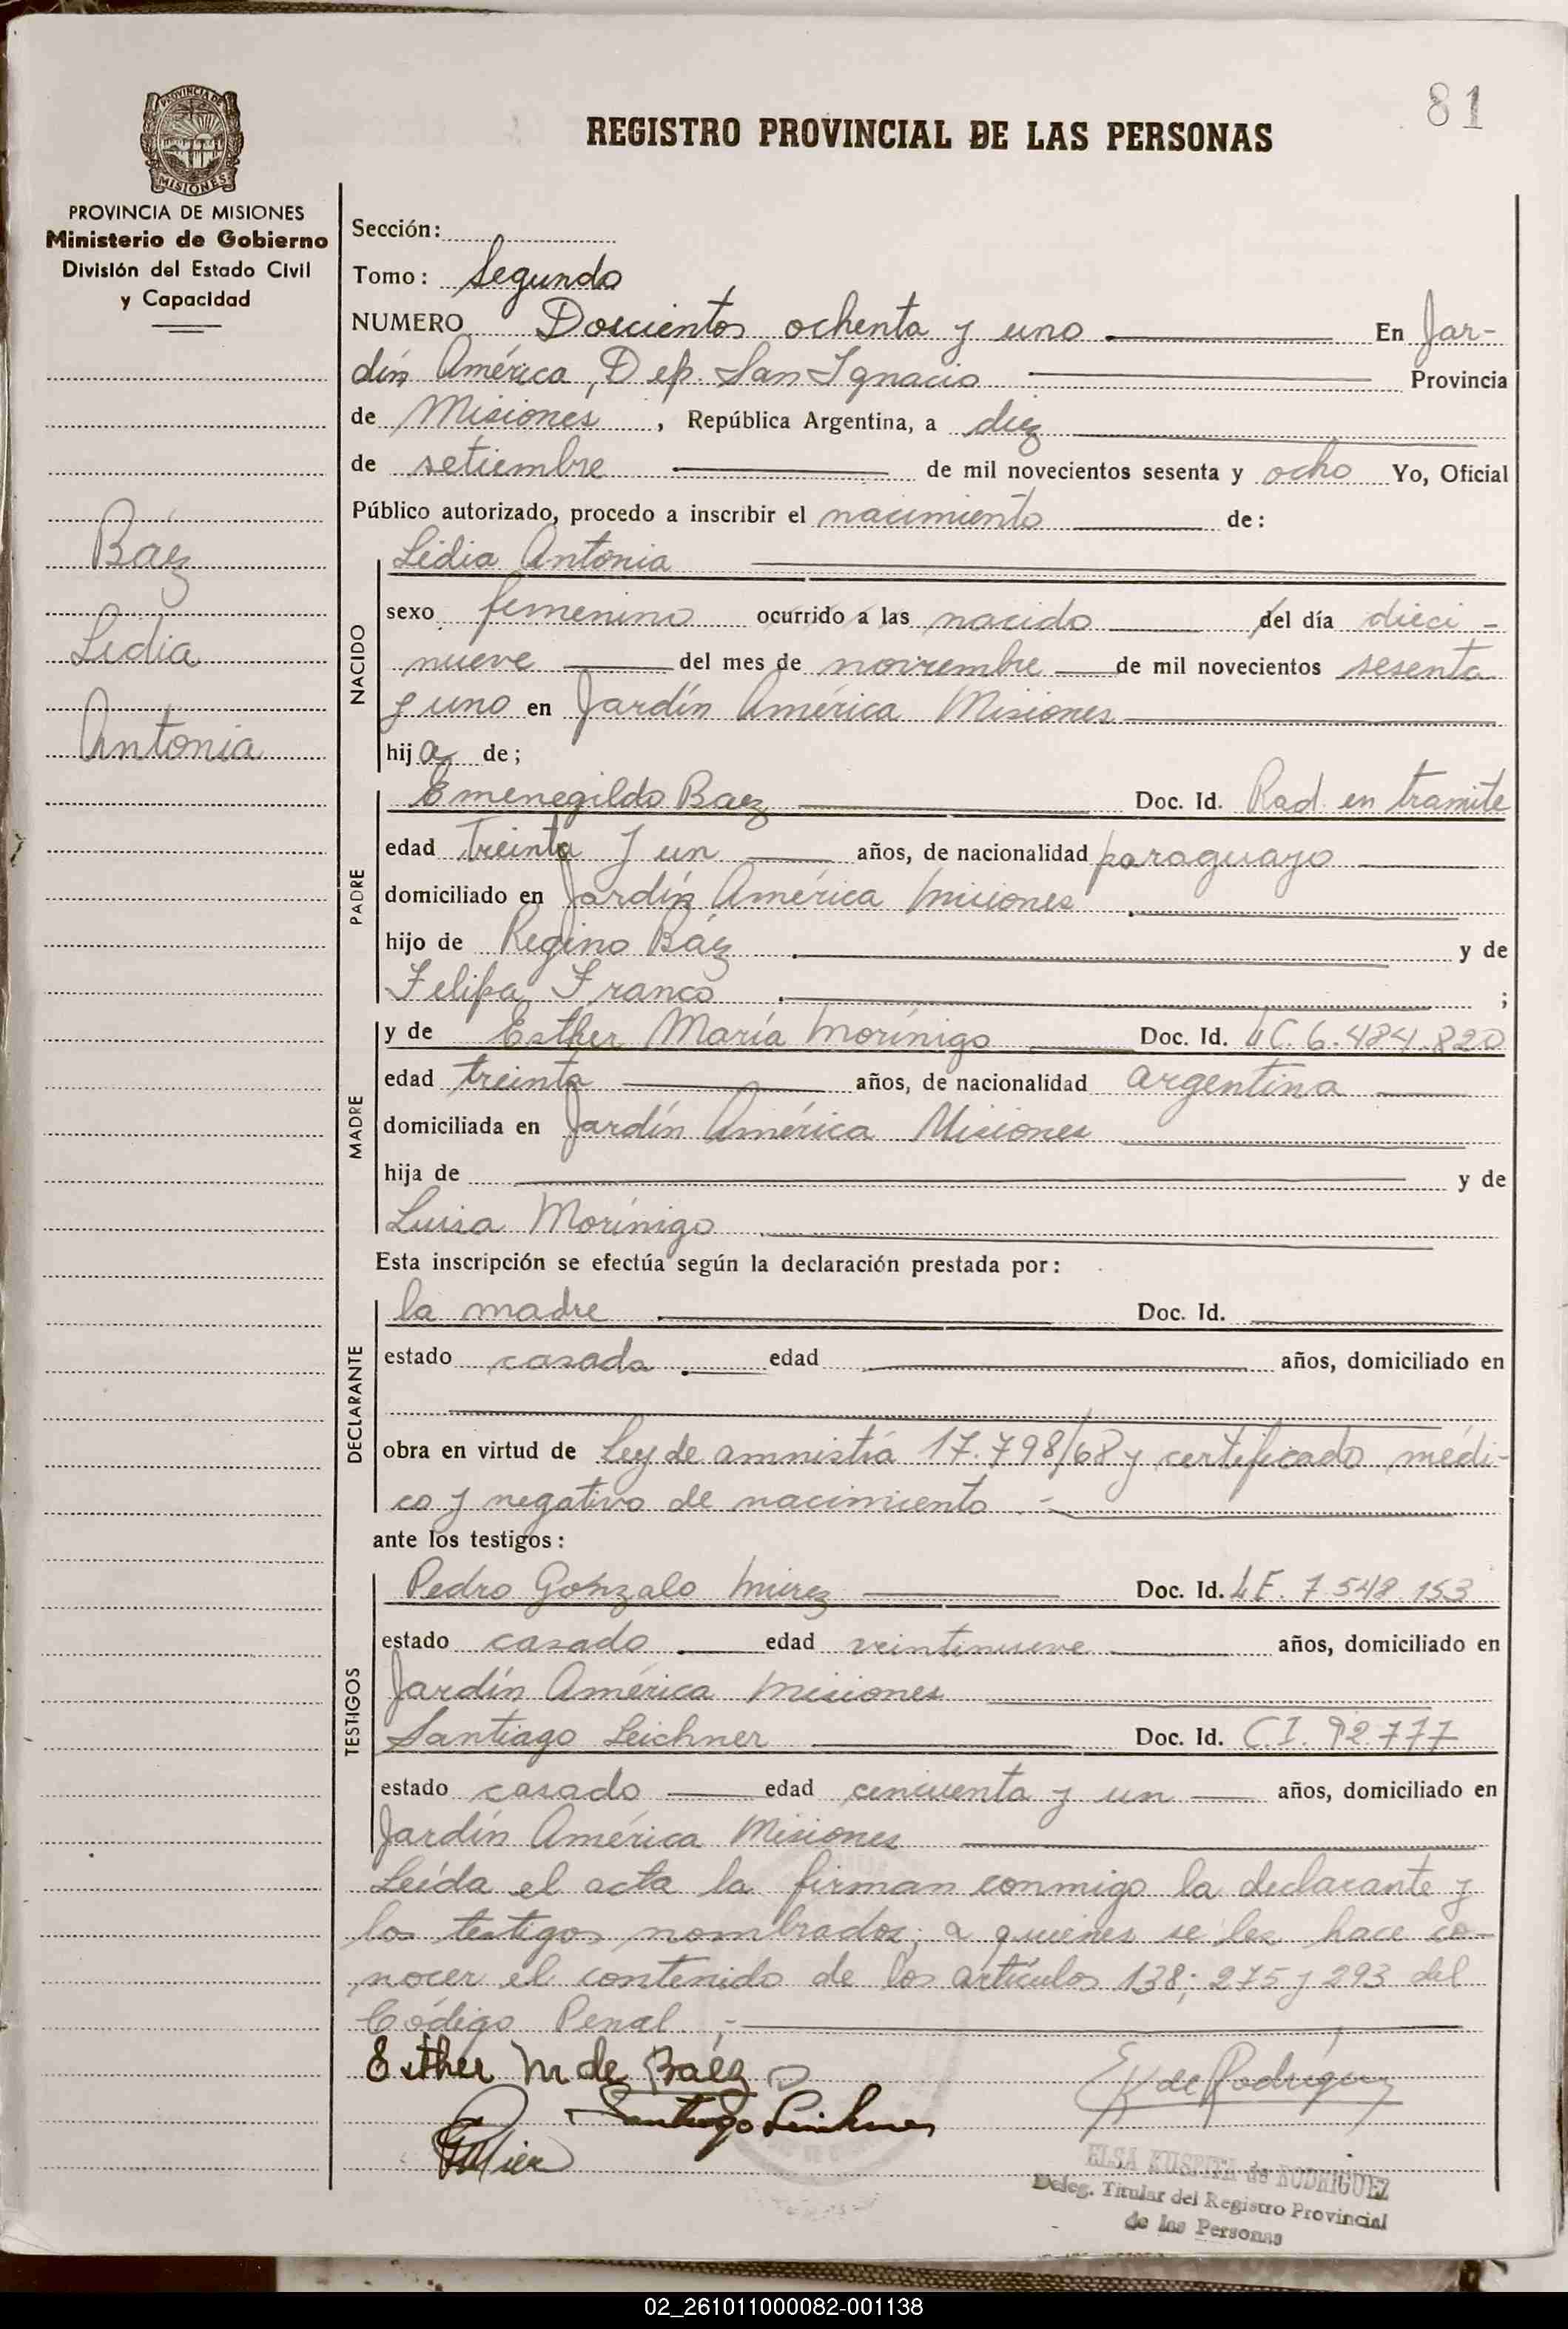 81
REGISTRO PROVINCIAL DE LAS PERSONAS
PROVINCIA DE
MISIONES
PROVINCIA DE MISIONES
Ministerio de Gobierno
División del Estado Civil
y Capacidad
Báez
Lidia
Antonia
Sección:
Tomo: Segundo
NUMERO Doscientos ochenta y uno En Jar-
dín América, Dep. San Ignacio Provincia
de Misiones, República Argentina, a diez
de setiembre de mil novecientos sesenta y ocho Yo, Oficial
Público autorizado, procedo a inscribir el nacimiento de:
Lidia Antonia
NACIDO
sexo femenino ocurrido a las nacido del día dieci-
nueve del mes de noviembre de mil novecientos sesenta
y uno en Jardín América Misiones
hija de;
PADRE
Emenegildo Baez Doc. Id. Rad. en tramite
edad treinta y un años, de nacionalidad paraguayo
domiciliado en Jardín América Misiones
hijo de Regino Báez y de
Felipa Franco ;
MADRE
y de Esther María Morínigo Doc. Id. LC. 6.484.820
edad treinta años, de nacionalidad argentina
domiciliada en Jardín América Misiones
hija de y de
Luisa Morínigo
Esta inscripción se efectúa según la declaración prestada por:
DECLARANTE
la madre Doc. Id.
estado casada edad años, domiciliado en
obra en virtud de Ley de amnistía 17.798/68 y certificado médi-
co y negativo de nacimiento.-
ante los testigos:
TESTIGOS
Pedro Gonzalo Doc. Id. LE. 7.548.153
estado casado edad veintinueve años, domiciliado en
Jardín América Misiones
Santiago Leichner Doc. Id. C.I. 92.777
estado casado edad cincuenta y un años, domiciliado en
Jardín América Misiones
Leída el acta la firman conmigo la declarante y
los testigos nombrados; a quienes se les hace co-
nocer el contenido de los artículos 138; 275 y 293 del
Código Penal.-
Esther M de Báez
Santiago Leichner
E K de Rodríguez
ELSA KUSPITA de RODRIGUEZ
Deleg. Titular del Registro Provincial
de las Personas
02_261011000082-001138